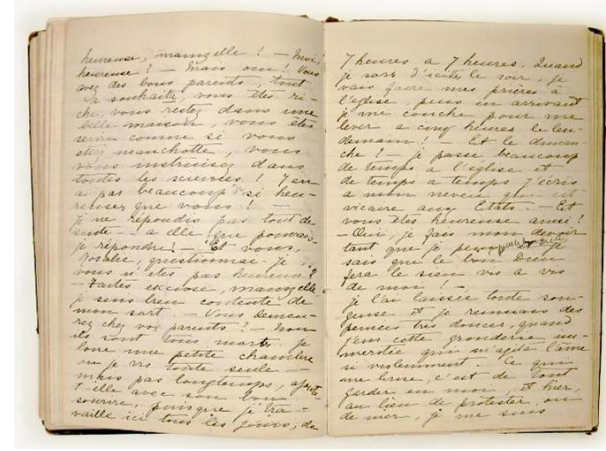 heureuse, mamzelle ! — Moi,
heureuse ? — Mais oui ! Vous
avez des bons parents, tout
à souhaite, vous êtes ri-
che, vous restez dans une
belle maison, vous êtes
servie comme si vous
étiez manchotte, vous
vous instruisez dans
toutes les sciences ! Y en
a pas beaucoup de si heu-
reuses que vous ! —
Je ne répondis pas tout de
suite — à elle que pouvais-
je répondre ! — Et vous,
Rosalie, questionnai-je
vous n'êtes pas heureuse ?
— Faites excuse, mamzelle,
je suis bien contente de
mon sort. — Vous demeu-
rez chez vos parents ? — Non
ils sont tous morts. Je
loue une petite chambre
où je vis toute seule —
mais pas longtemps, ajouta-
t-elle avec son bon
sourire, puisque je tra-
vaille ici tous les jours, de
7 heures à 7 heures. Quand
je sors d'ici le soir, je
vais faire mes prières à
l'église, puis en arrivant
je me couche pour me
lever à cinq heures le len-
demain ! — Et le diman-
che ! — Je passe beaucoup
de temps à l'église et
de temps à temps j'écris
à mon neveu qui est
vicaire aux Etats. — Et
vous êtes heureuse ainsi !
— Oui, je fais mon devoir
tant que je peux, et je
sais que le bon Dieu
fera le sien vis à vis
de moi ! —
Je l'ai laissée toute son-
geuse et je remuais des
pensées très douces, quand
j'eus cette gronderie im-
méritée qui m'agita l'âme
si violemment. Ce qui
me brise, c'est de tout
garder en moi, et hier,
au lieu de protester ou
de me, je me suis